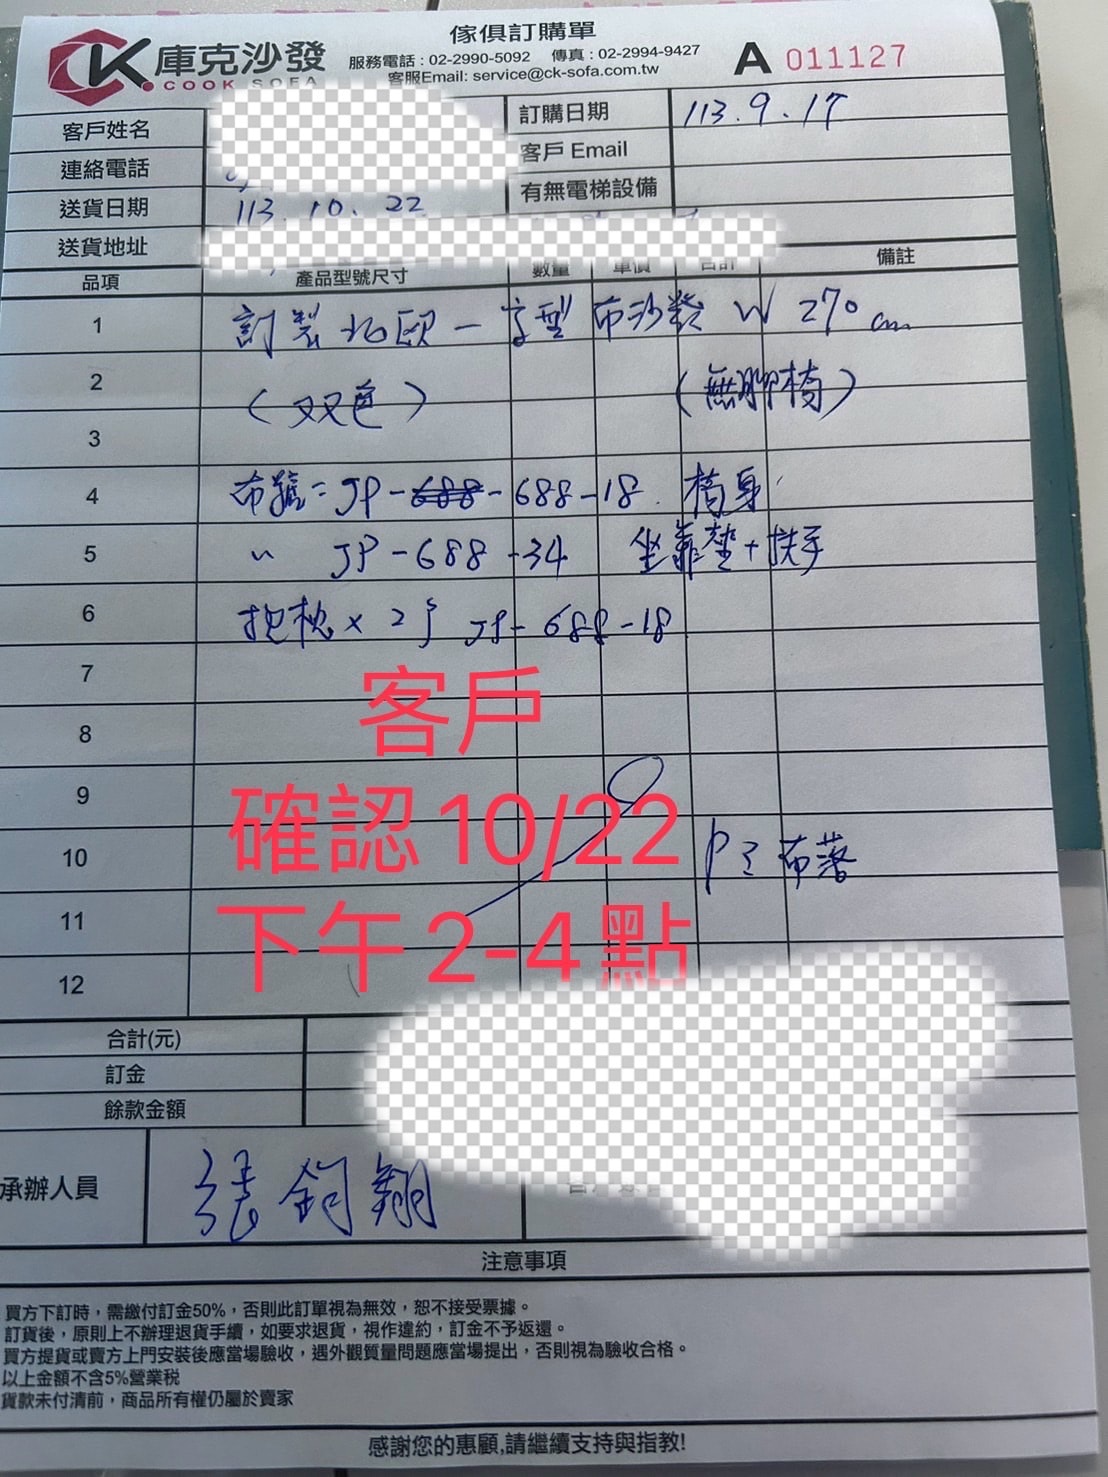 CK 庫克沙發
COOK SOFA
傢俱訂購單
服務電話：02-2990-5092 傳真：02-2994-9427
客服Email: service@ck-sofa.com.tw
A 011127
客戶姓名
訂購日期 113.9.17
連絡電話
客戶 Email
送貨日期 113.10.22
有無電梯設備
送貨地址
品項 產品型號尺寸 數量 單價 合計 備註
1 訂製北歐一字型布沙發 W 270cm
2 (双色) (無腳椅)
3
4 布號=JP-688-688-18. 椅身
5 〃 JP-688-34 坐靠墊+扶手
6 抱枕x2 JP-688-18
7
客戶
8
9
確認10/22
10 布落
11
下午2-4點
12
合計(元)
訂金
餘款金額
承辦人員 張鈞翔
注意事項
買方下訂時，需繳付訂金50%，否則此訂單視為無效，恕不接受票據。
訂貨後，原則上不辦理退貨手續，如要求退貨，視作違約，訂金不予返還。
買方提貨或賣方上門安裝後應當場驗收，遇外觀質量問題應當場提出，否則視為驗收合格。
以上金額不含5%營業税
貨款未付清前，商品所有權仍屬於賣家
感謝您的惠顧,請繼續支持與指教!